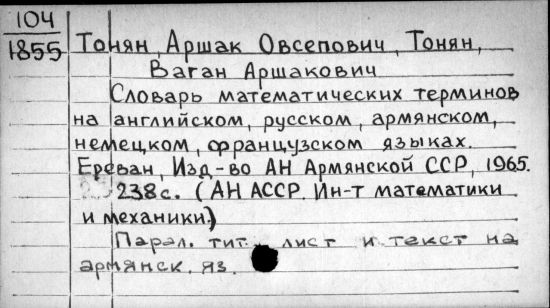 104
1855
Тонян, Аршак Овсепович, Тонян,
Ваган Аршакович
Словарь математических терминов
на английском, русском, армянском,
немецком, французском языках.
Ереван, Изд-во АН Армянской ССР, 1965.
238с. (АН АССР. Ин-т математики
и механики)
Парал. тит. лист и текст на
армянск. яз.